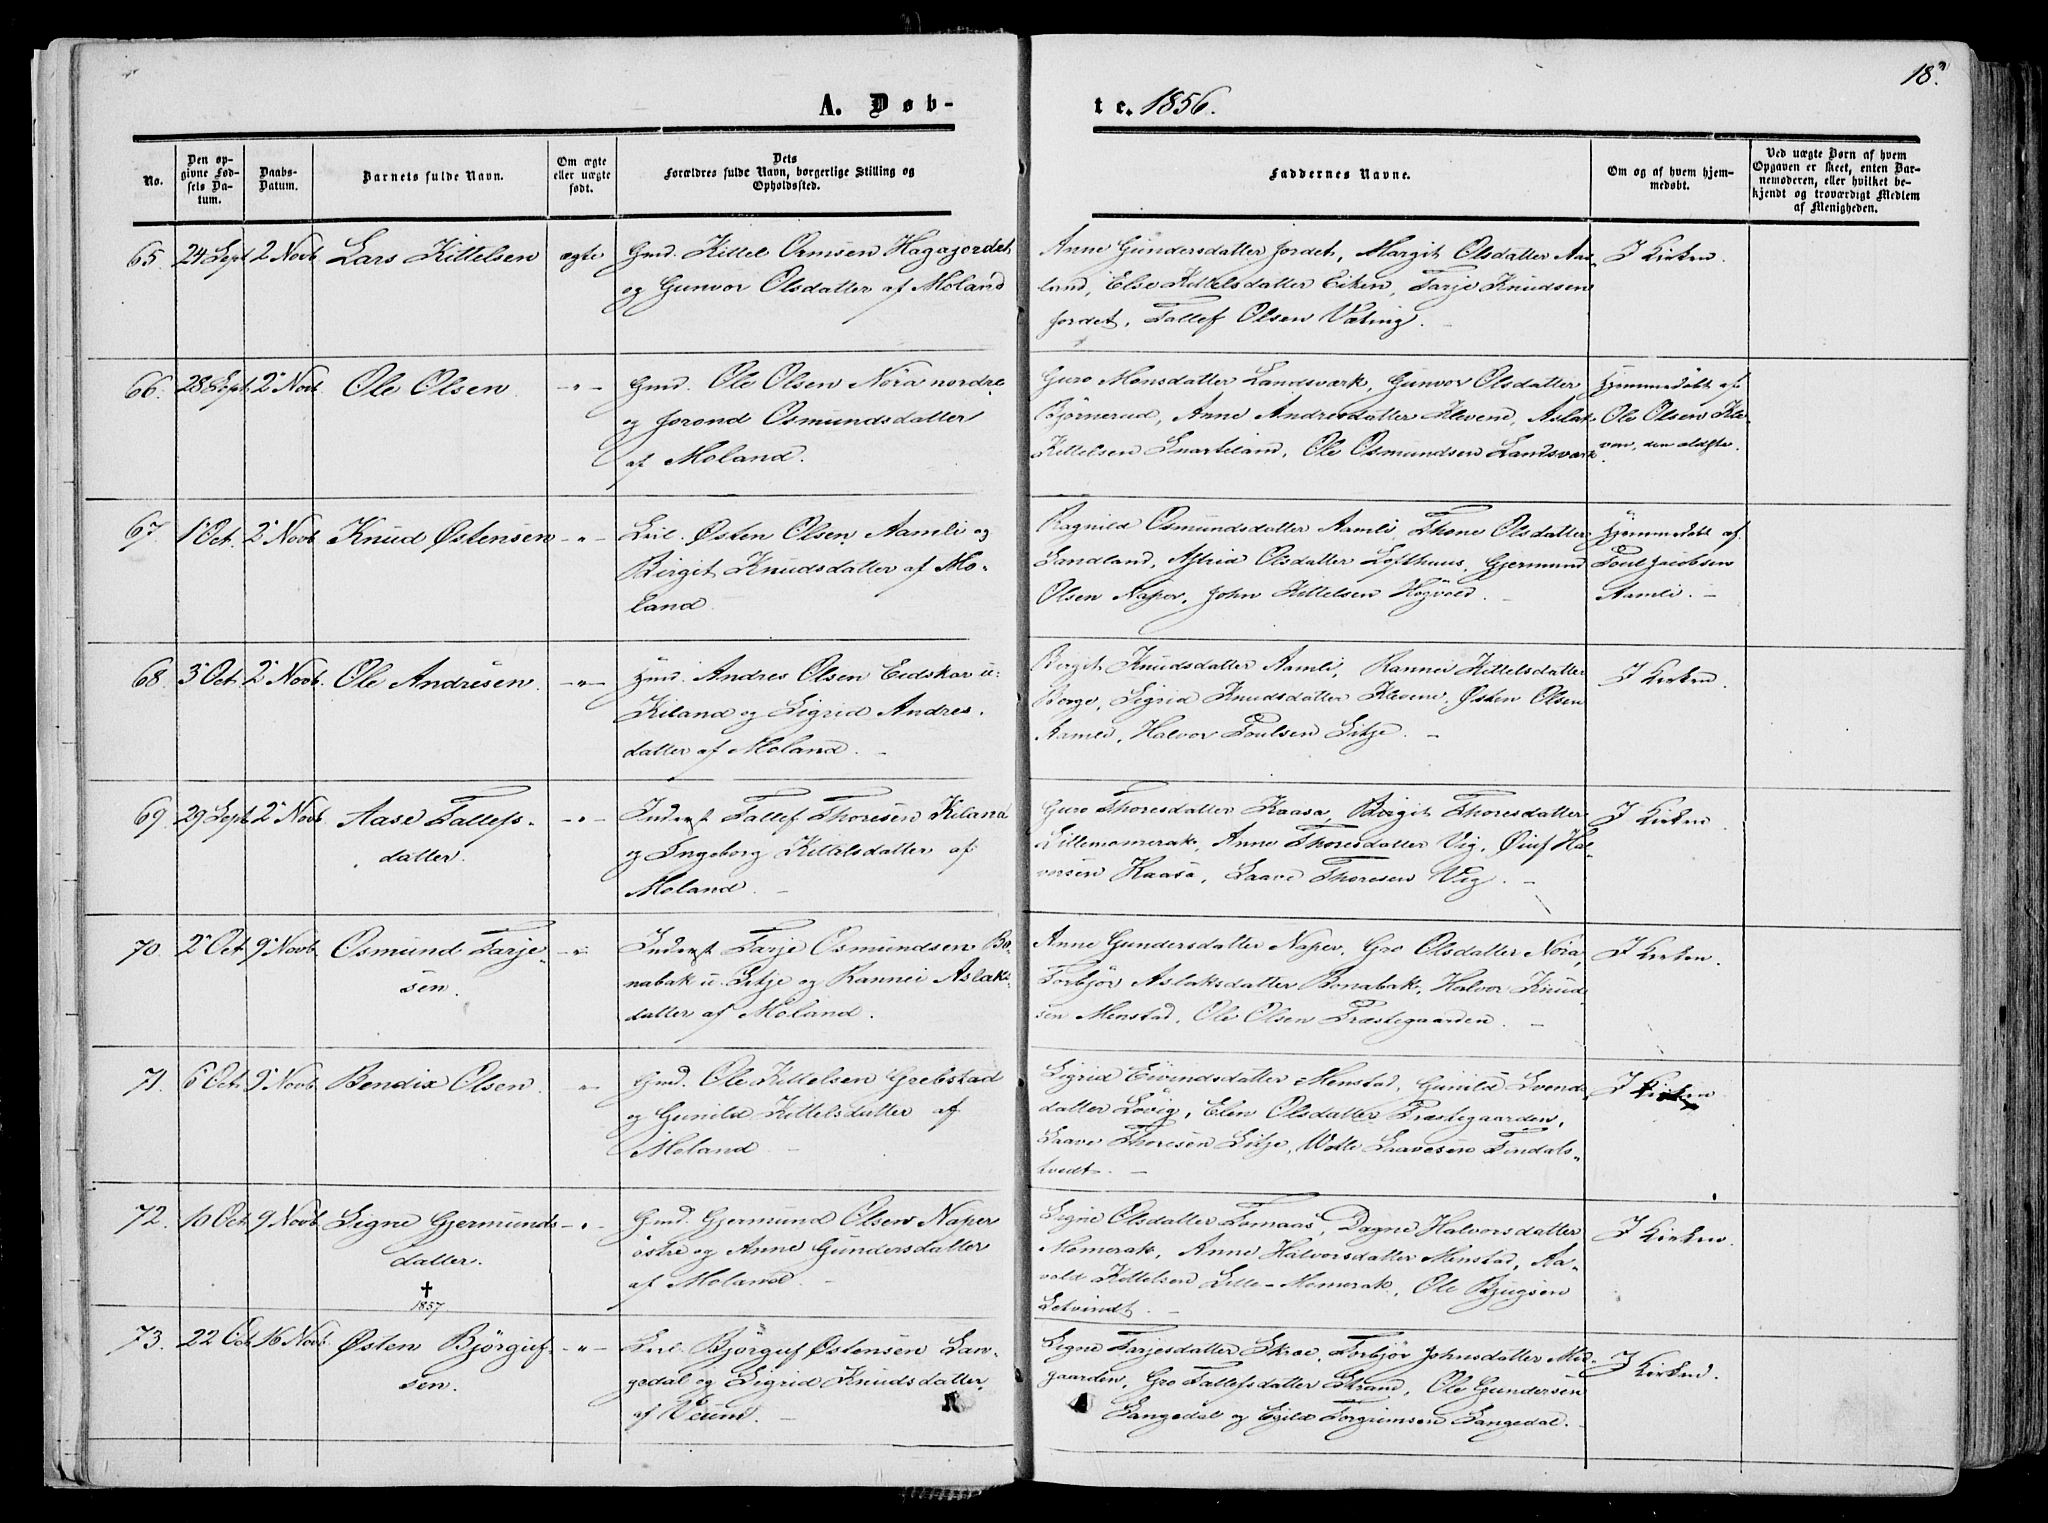 18.
A. Døb-
te. 1856.
No.
Den op-
givne Fød-
sels Da-
tum.
Daabs-
Datum.
Barnets fulde Navn.
Om ægte
eller uægte
født.
Dets
Forældres fulde Navn, borgerlige Stilling og
Opholdssted.
Faddernes Navne.
Om og af hvem hjem-
medøbt.
Ved uægte Børn af hvem
Opgaven er skeet, enten Bar-
nemoderen, eller hvilket be-
kjendt og troværdigt Medlem
af Menigheden.
65. 24 Sept 2 Novb. Lars Kittelsen ægte Gmd. Kittel Ormsen Hagajordet
og Gunvor Olsdatter af Moland
Anne Gundersdatter Jordet, Margit Olsdatter Aas-
land, Else Kittelsdatter Eiken, Tarje Knudsen
Jordet, Tallef Olsen Væting.
I Kirken.
66. 28 Sept 2 Novb. Ole Olsen. -"- Gmd. Ole Olsen Nora nordre
og Jorond Osmundsdatter
af Moland.
Guro Monsdatter Landsværk, Gunvor Olsdatter
Björnerud, Anne Andresdatter Klevene, Aslak
Kittelsen Snarteland, Ole Osmundsen Landsværk
Hjemmedöbt af
Ole Olsen Kle-
ven, den ældste.
67. 1 Oct. 2 Novb. Knud Østensen -"- Leil. Østen Olsen Aamli og
Birgit Knudsdatter af Mo-
land.
Ragnild Osmundsdatter Aamli, Thone Olsdatter
Sandland, Astrid Olsdatter Lofthuus, Gjermund
Olsen Naper, John Kittelsen Högvold.
Hjemmedöbt af
Poul Jacobsen
Aamli.
68. 3 Oct. 2 Novb. Ole Andresen. -"- Hmd. Andres Olsen Eidskar u:
Kiland og Sigrid Andres-
datter af Moland.
Bergit Knudsdatter Aamli, Rannei Kittelsdatter
Berge, Sigrid Knudsdatter Klevene, Østen Olsen
Aamli, Halvor Poulsen Sitje.
I Kirken.
69. 29 Sept 2 Novb. Aase Tallefs-
datter. -"- Inderst Tallef Thoresen Kiland
og Ingeborg Kittelsdatter af
Moland.
Guro Thoresdatter Kaasa, Birgit Thoresdatter
Lillemomrak, Anne Thoresdatter Vig, Øiuf Hal-
vorsen Kaasa, Laave Thoresen Vig.
I Kirken.
70. 2 Oct. 9 Novb. Osmund Tarje-
sen. -"- Inderst Tarje Osmundsen Bo-
nabak u. Sitje og Rannei Aslaks-
datter af Moland.
Anne Gundersdatter Naper, Gro Olsdatter Nora,
Torbjör Aslaksdatter Bonabak, Halvor Knud-
sen Menstad, Ole Olsen Præstegaarden.
I Kirken.
71. 6 Oct. 9 Novb. Bendix Olsen. " Gmd. Ole Kittelsen Grebstad
og Gunild Kittelsdatter af
Moland.
Sigrid Eivindsdatter Menstad, Gunild Svends-
datter Lövig, Elen Olsdatter Præstegaarden,
Laave Thoresen Sitje, Wetle Laavesen Tindals-
tvedt.
I Kirken.
72. 10 Oct. 9 Novb. Signe Gjermunds-
datter.
✝
1857
-"- Gmd. Gjermund Olsen Naper
östre og Anne Gundersdatter
af Moland.
Signe Olsdatter Tomaas, Dagne Halvorsdatter
Momerak, Anne Halvorsdatter Menstad, Aa-
vald Kittelsen Lille-Momerak, Ole Bjugsen
Setvindt.
I Kirken.
73. 22 Oct 16 Novb. Østen Björguf-
sen. -"- Leil. Björguf Østensen Lan-
gedal og Sigrid Knudsdatter,
af Veum.
Signe Tarjesdatter Skræ, Torbjör Johnsdatter Mid-
gaarden, Gro Tallefsdatter Strand, Ole Gundersen
Langedal og Egild Torgrimsen Langedal.
I Kirken.